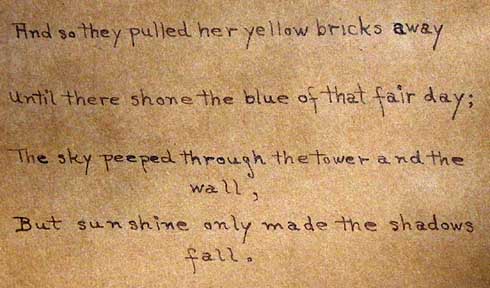 And so they pulled her yellow bricks away
Until there shone the blue of that fair day;
The sky peeped through the tower and the
wall,
But sunshine only made the shadows
fall.